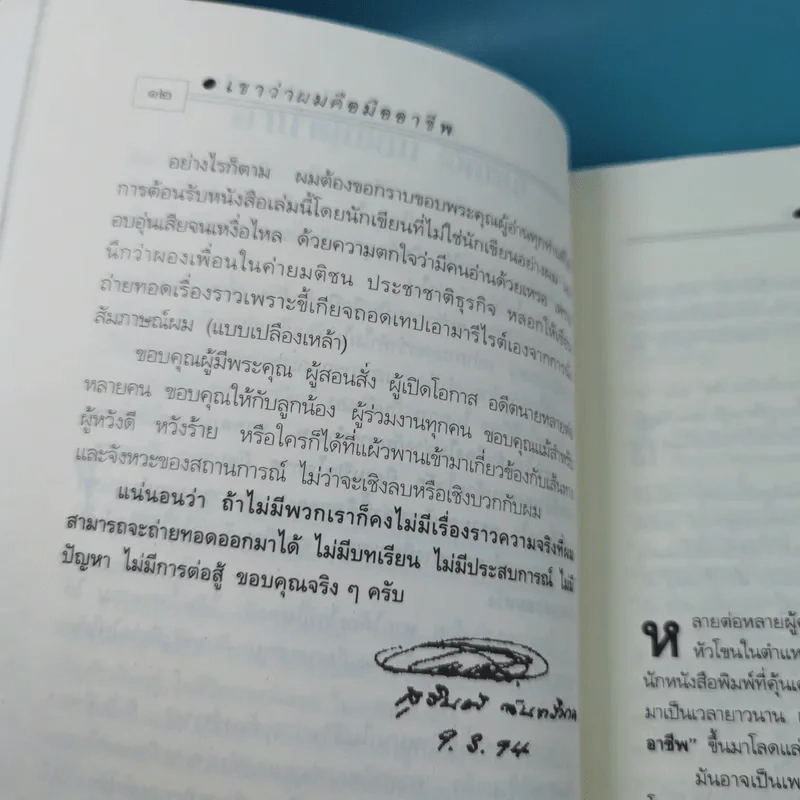 ๑๒
เขาว่าผมคือมืออาชีพ
อย่างไรก็ตาม ผมต้องขอกราบขอบพระคุณผู้อ่านทุกท่านที่
การต้อนรับหนังสือเล่มนี้โดยนักเขียนที่ไม่ใช่นักเขียนอย่างผม
อบอุ่นเสียจนเหงื่อไหล ด้วยความตกใจว่ามีคนอ่านด้วยเหรอ
นึกว่าผองเพื่อนในค่ายมติชน ประชาชาติธุรกิจ หลอกให้เขียน
ถ่ายทอดเรื่องราวเพราะขี้เกียจถอดเทปเอามารีไรต์เองจากการ
สัมภาษณ์ผม (แบบเปลืองเหล้า)
ขอบคุณผู้มีพระคุณ ผู้สอนสั่ง ผู้เปิดโอกาส อดีตนายหลายต่อ
หลายคน ขอบคุณให้กับลูกน้อง ผู้ร่วมงานทุกคน ขอบคุณแม้สำหรับ
ผู้หวังดี หวังร้าย หรือใครก็ได้ที่แผ้วพานเข้ามาเกี่ยวข้องกับเส้นทาง
และจังหวะของสถานการณ์ ไม่ว่าจะเชิงลบหรือเชิงบวกกับผม
แน่นอนว่า ถ้าไม่มีพวกเราก็คงไม่มีเรื่องราวความจริงที่ผม
สามารถจะถ่ายทอดออกมาได้ ไม่มีบทเรียน ไม่มีประสบการณ์ ไม่มี
ปัญหา ไม่มีการต่อสู้ ขอบคุณจริง ๆ ครับ
9.8.94
หลายต่อหลายผู้
หัวโขนในตำแห
นักหนังสือพิมพ์ที่คุ้นเ
มาเป็นเวลายาวนาน
อาชีพ" ขึ้นมาโลดแล่
มันอาจเป็นเพ